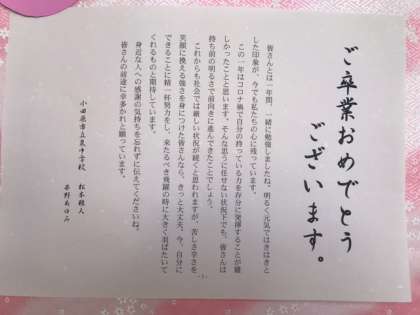 ご卒業おめでとう
ございます。
皆さんとは一年間、一緒に勉強しましたね。明るく元気ではきはきと
した印象が、今でも私たちの心に残っています。
この一年はコロナ禍で自分の持っている力を存分に発揮することが難
しかったことと思います。そんな思うに任せない状況下でも、皆さんは
持ち前の明るさで前向きに進んできたことでしょう。
これからも社会では厳しい状況が続くと思われますが、苦しさ辛さを
笑顔に換える強さを身につけた皆さんなら、きっと大丈夫。今、自分に
できることに精一杯努力をし、来たるべき飛躍の時に大きく羽ばたいて
くれるものと期待しています。
身近な人への感謝の気持ちを忘れずに伝えてくださいね。
皆さんの前途に幸多かれと願っています。
小田原市立泉中学校 松本雅人